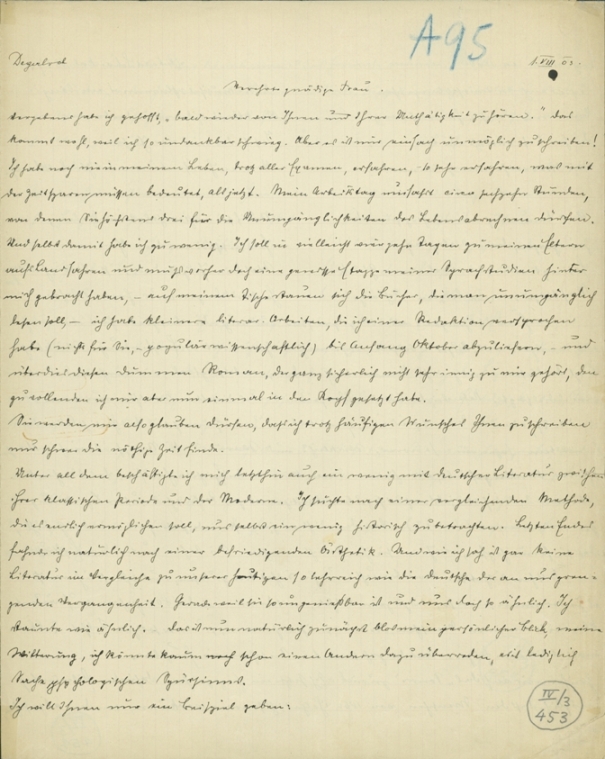 A95
1. VIII 05.
Verehrte gnädige Frau.
Vergebens habe ich gehofft, „bald wieder von Ihnen und Ihrer Muthätigkeit zu hören." Das
kommt wohl, weil ich so undankbar schwieg. Aber es ist mir einfach unmöglich zu schreiben!
Ich habe noch nie in meinem Leben, trotz aller Examen, erfahren, so sehr erfahren, was mit
der Zeit sparen müssen bedeutet, als jetzt. Mein Arbeitstag umfaßt einen sechzehn Stunden,
von denen Sie höchstens drei für die Unumgänglichkeiten des Lebens abrechnen dürfen.
Und selbst damit habe ich zu wenig. Ich soll in vielleicht vierzehn Tagen zu meinen Eltern
aufs Land fahren und muß vorher doch eine gewisse Etappe meiner Sprachstudien hinter
mich gebracht haben, – auf meinem Tische stauen sich die Bücher, die man unumgänglich
lesen soll, – ich habe kleinere literar. Arbeiten, die ich einer Redaktion versprochen
habe (nicht für Sie, – populärwissenschaftlich) bis Anfang Oktober abzuliefern, – und
überdies diesen dummen Roman, der ganz sicherlich nicht sehr innig zu mir gehört, den
zu vollenden ich mir aber nun einmal in den Kopf gesetzt habe.
Sie werden mir also glauben dürfen, daß ich trotz häufigen Wunsches Ihnen zu schreiben
nur schwer die nöthige Zeit finde.
Unter all dem beschäftigte ich mich letzthin auch ein wenig mit deutscher Literatur zwischen
ihrer klassischen Periode und der Moderne. Ich suchte nach einer vergleichenden Methode,
die es endlich ermöglichen soll, uns selbst ein wenig historisch zu betrachten. Letzten Endes
fahnde ich natürlich nach einer befriedigenden Ästhetik. Und wie ich sah ist gar keine
Literatur im Vergleiche zu unserer heutigen so lehrreich wie die deutsche der an uns gren-
zenden Vergangenheit. Gerade weil sie so ungenießbar ist und uns doch so ähnlich. Ich
staunte wie ähnlich. – Das ist nun natürlich zunächst blos mein persönlicher Blick, meine
Witterung, ich könnte kaum noch schon einen Andern dazu überreden, als lediglich
Sache psychologischen Spürsinns.
Ich will Ihnen nur ein Beispiel geben:
IV/3
453